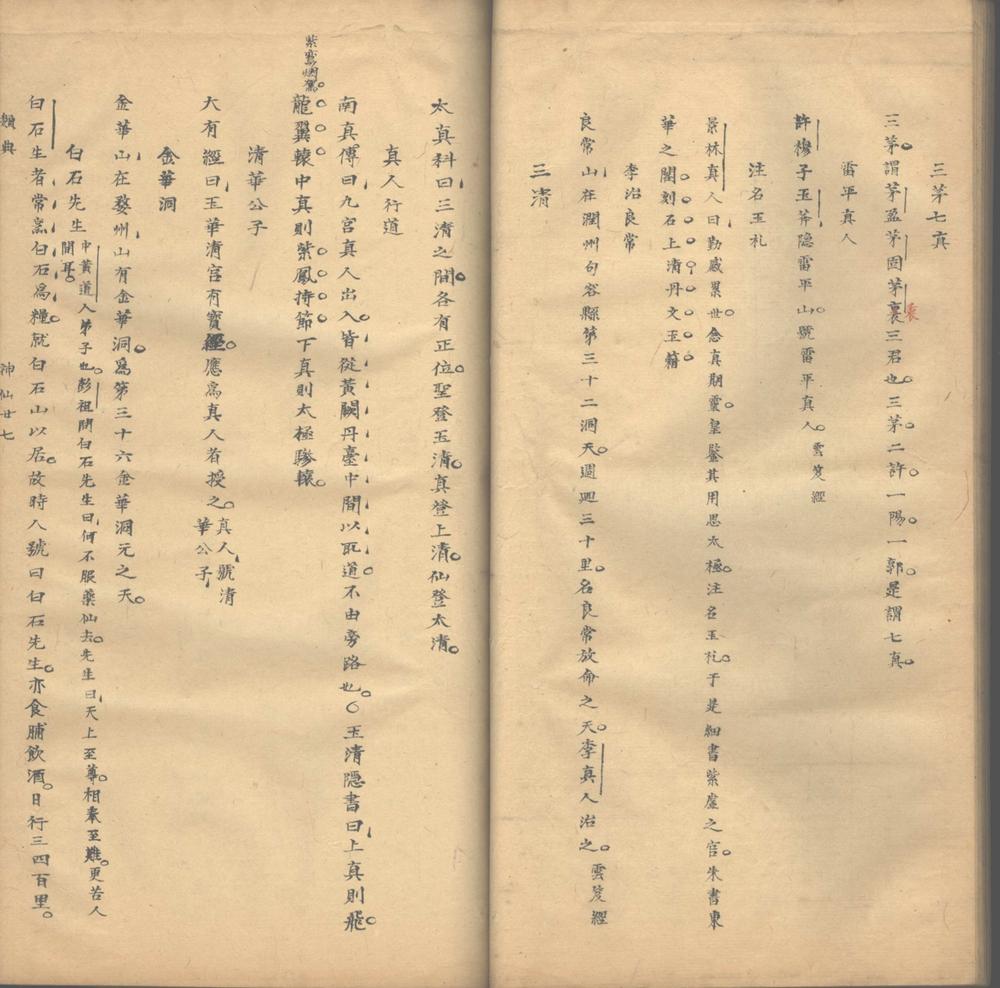 三茅七真
三茅謂茅盈茅固茅裏三君也三茅二許一陽一郭是謂七真
衷
雷平真人
許穆子玉斧隐雷平山號雷平真人雲笈經
注名玉札
景林真人曰勤感累世念真期靈皇鑒其用思太極注名玉札于是細書紫虛之宮朱書東
華之閣刻石上清丹文玉籍
李治良常
良常山在潤州句容縣第三十二洞天週迴三十里名良常放命之天李真人治之雲笈經
三清
太真科曰三清之間各有正位聖登玉清真登上清仙登太清
真人行道
南真傳曰九宫真人出入皆從黃闕丹臺中間以取道不由旁路也〇玉清隐書曰上真則飛
紫鸞
龍翼轅中真則紫鳳持節下真則太極驂轅
清華公子
大有經曰玉華清宫有寳經應為真人者授之真人號清
華公子
金華洞
金華山在婺州山有金華洞為第三十六金華洞元之天
白石先生中黃道人弟子也彭祖問白石先生曰何不服藥仙去先生曰天上至尊相奉至難更苦人
間耳
白石生者常煑白石為糧就白石山以居故時人號曰白石先生亦食脯飲酒日行三四百里
類典
神仙廿七